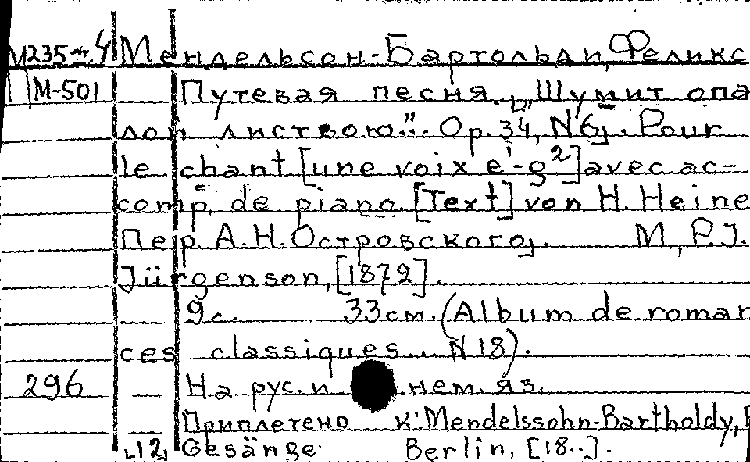 М235-т.4 Мендельсон-Бартольди, Феликс
М-501 Путевая песня. „Шумит опа
лой листвою". Op. 34, N 6. Pour
le chant [une voix e'-g²] avec ac-
comp. de piano. [Text] von H. Heine
Пер. А.Н. Островского. M, P.J.
Jürgenson, [1872].
9 с. 33 см. (Album de roman
ces classiques. N 18).
296 На рус. и нем. яз.
Приплетено к: Mendelssohn-Bartholdy,
12 Gesänge. Berlin, [18..].